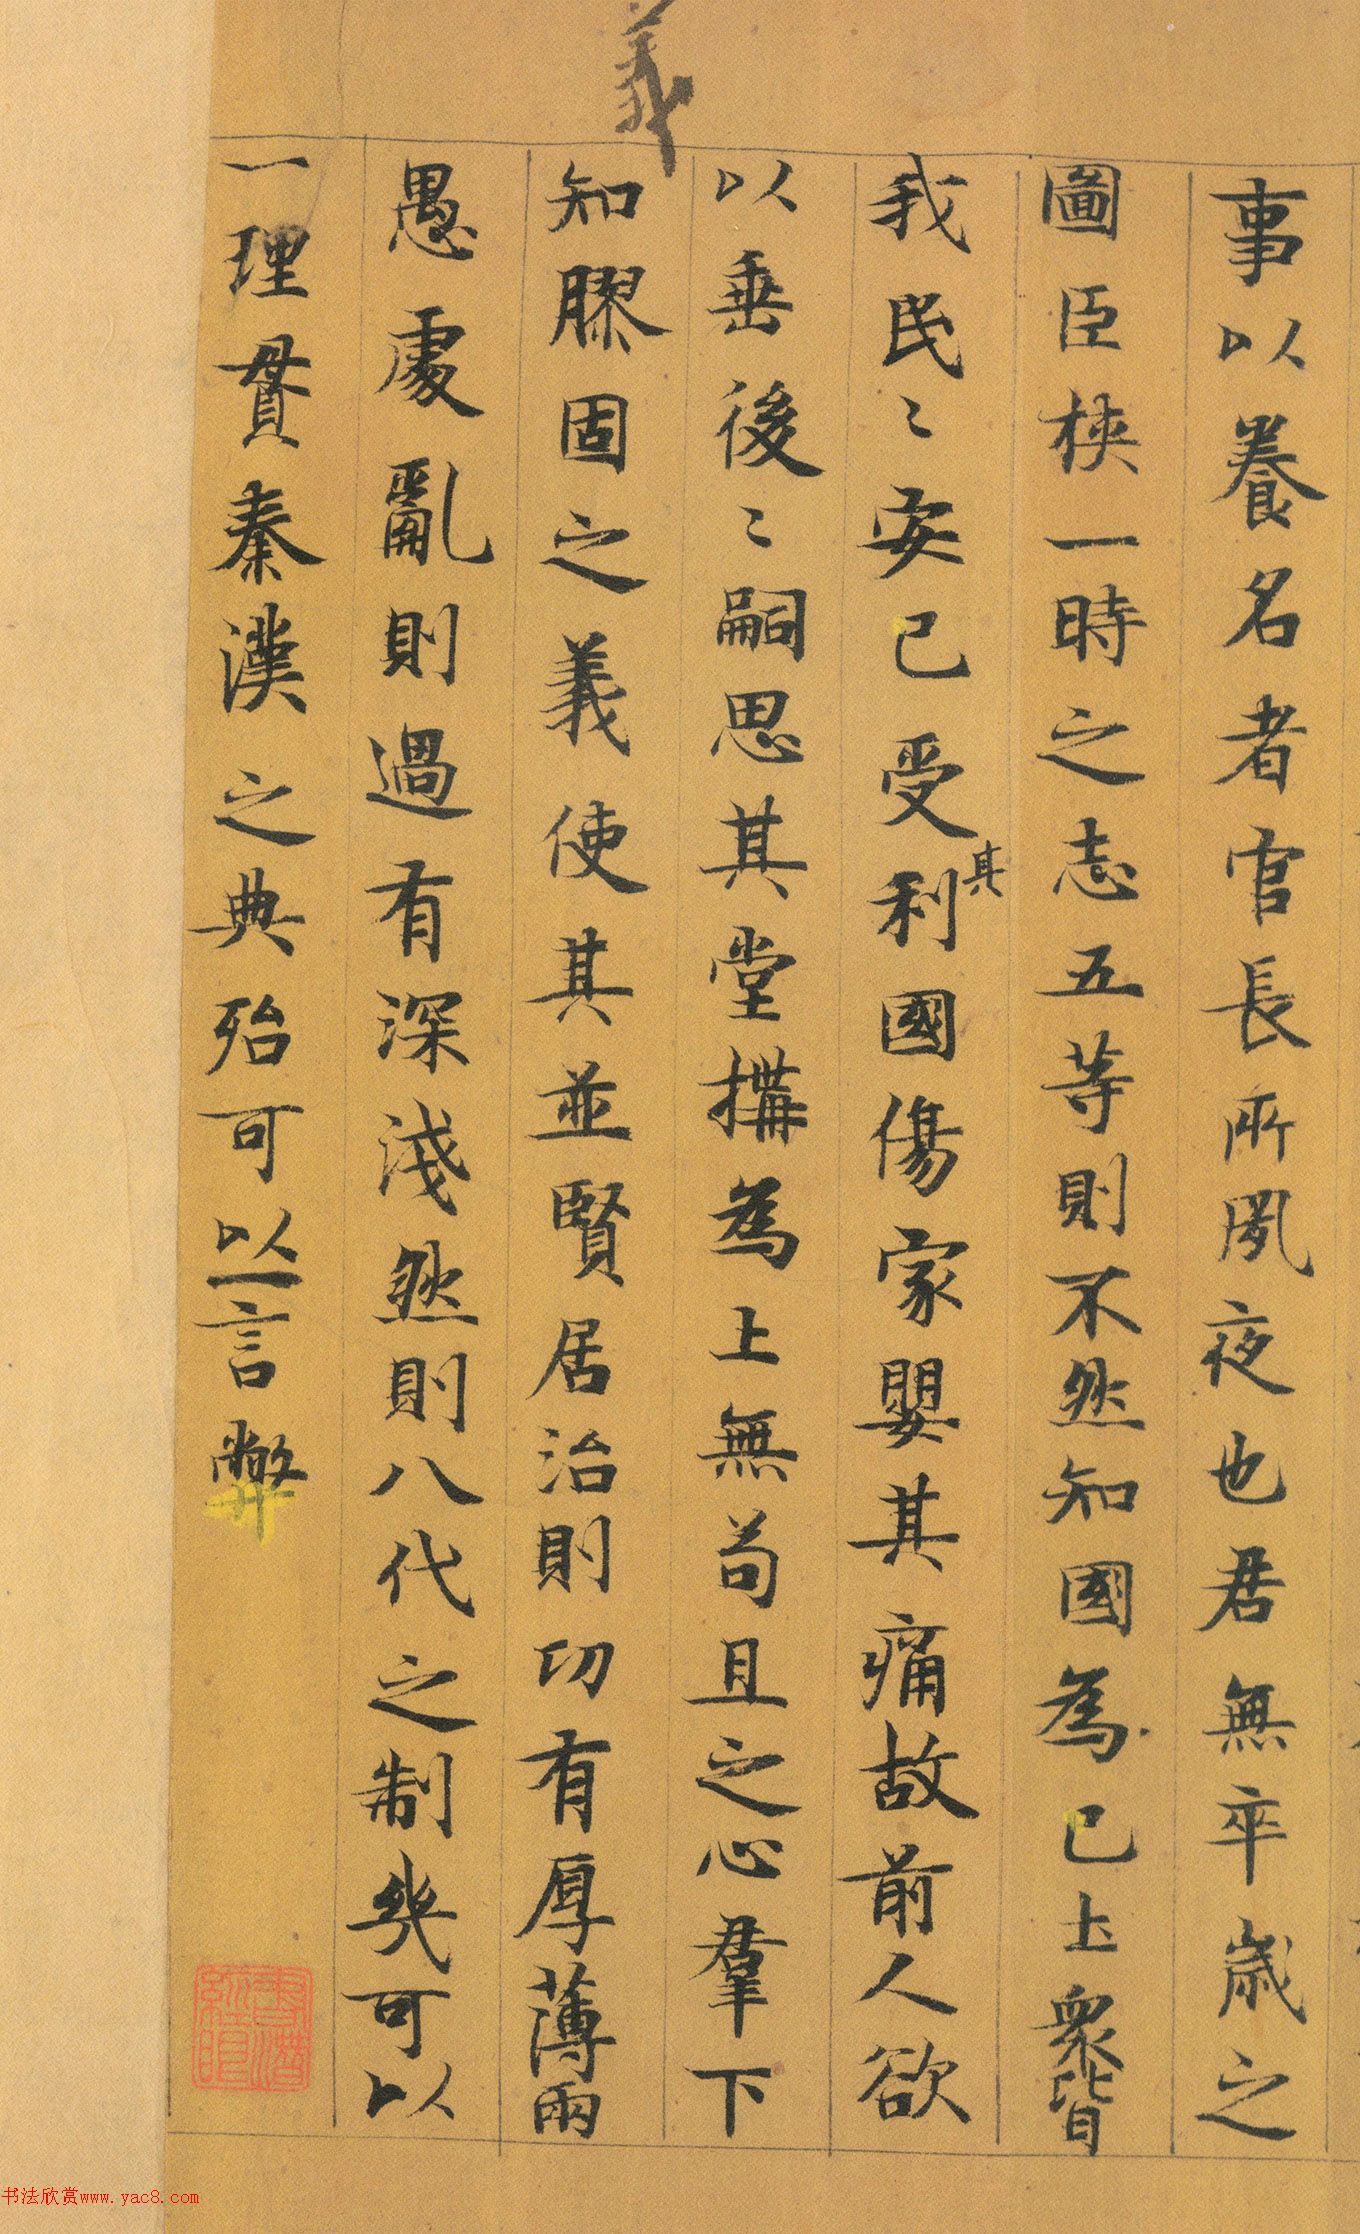 義
事以養名者官長所夙夜也君無卒歲之
圖臣挾一時之志五等則不然知國為已上衆皆
我民〻安已受利其國傷家嬰其痛故前人欲
以垂後〻嗣思其堂構為上無苟且之心羣下
知膠固之義使其並賢居治則功有厚薄兩
愚處亂則過有深淺然則八代之制幾可以
一理貫秦漢之典殆可以一言弊
书法欣赏www.yac8.com